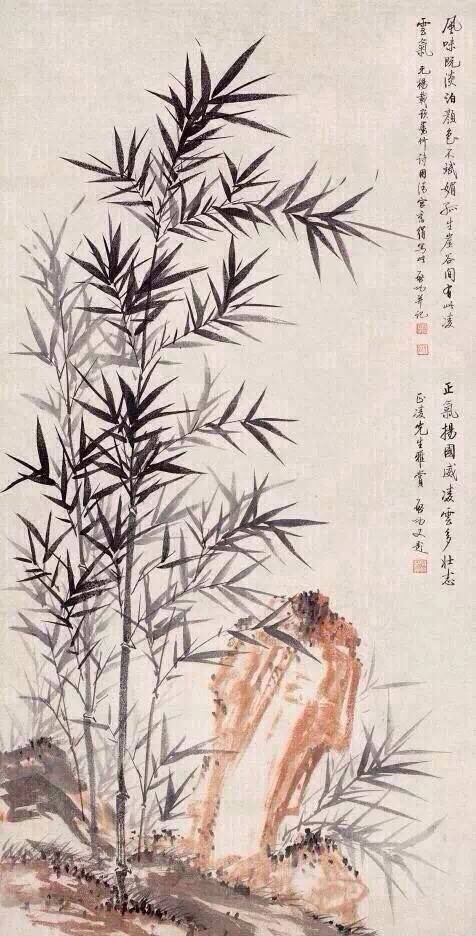 風味既淡泊顏色不斌媚孤生崖谷間有此凌
雲氣 元楊載題墨竹詩用清宮舊絹寫此 啟功並記
正氣揚國威凌雲多壯志
正凌先生雅賞 啟功又